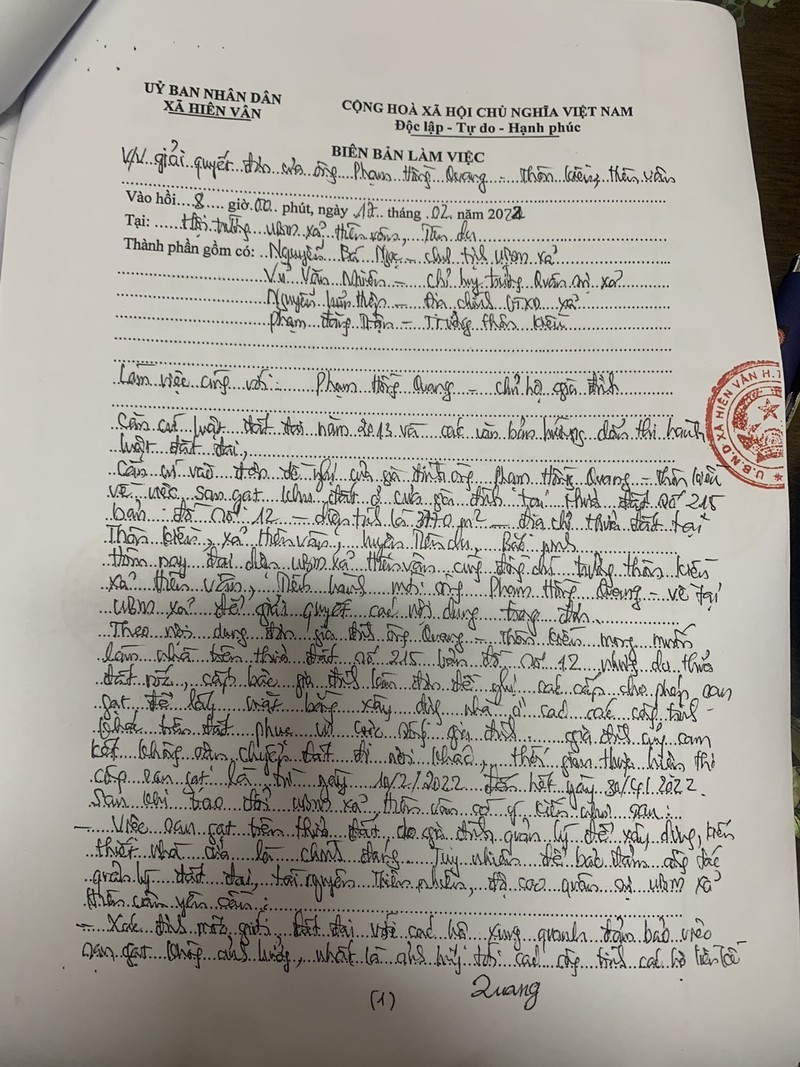 UỶ BAN NHÂN DÂN
XÃ HIÊN VÂN
CỘNG HOÀ XÃ HỘI CHỦ NGHĨA VIỆT NAM
Độc lập - Tự do - Hạnh phúc
BIÊN BẢN LÀM VIỆC
V/v giải quyết đơn của ông Phạm Hồng Quang - Thôn Kiều, Hiên Vân
Vào hồi 8 giờ 00 phút, ngày 17 tháng 02 năm 2022
Tại: Hội trường UBND xã Hiên Vân, Tiên Du
Thành phần gồm có: Nguyễn Bá Ngọc - chủ tịch UBND xã
Vũ Văn Nhiên - chỉ huy trưởng Quân sự xã
Nguyễn Hữu - Địa chính GTXD xã
Phạm Đăng - Trưởng thôn Kiều
Làm việc cùng với: Phạm Hồng Quang - chủ hộ gia đình
Căn cứ luật đất đai năm 2013 và các văn bản hướng dẫn thi hành
luật đất đai,
Căn cứ vào đơn đề nghị của gia đình ông Phạm Hồng Quang - thôn Kiều
về việc san gạt khu đất ở của gia đình tại thửa đất số 215
bản đồ số 12 - diện tích là m² - địa chỉ thửa đất tại
Thôn Kiều, xã Hiên Vân, huyện Tiên Du, Bắc Ninh
Hôm nay đại diện UBND xã Hiên Vân cùng đồng chí trưởng thôn Kiều
xã Hiên Vân, Tiến hành mời ông Phạm Hồng Quang - về tại
UBND xã để giải quyết các nội dung trong đơn
Theo nội dung đơn gia đình ông Quang - Thôn Kiều mong muốn
làm nhà trên thửa đất số 215 bản đồ số 12 nhưng do thửa
đất, cấp bậc gia đình làm đơn đề nghị các cấp cho phép san
gạt để lấy mặt bằng xây dựng nhà ở các công trình
khác trên đất phục vụ cuộc sống gia đình gia đình cam
kết không vận chuyển đất đi nơi khác, thời gian thực hiện thi
công san gạt là từ ngày /2/2022 đến hết ngày 30/4/2022
Sau khi trao đổi UBND xã Hiên Vân có ý kiến như sau:
- Việc san gạt trên thửa đất do gia đình quản lý để xây dựng, kiến
thiết nhà cửa là chính đáng. Tuy nhiên để bảo đảm công tác
quản lý đất đai, tài nguyên thiên nhiên, độ cao quân sự UBND xã
Hiên Vân yêu cầu:
- Xác định mốc giới đất đai với các hộ xung quanh đảm bảo việc
san gạt không ảnh hưởng, nhất là tới các công trình các hộ liền kề
(1)
Quang
U.B.N.D XÃ HIÊN VÂN H.T